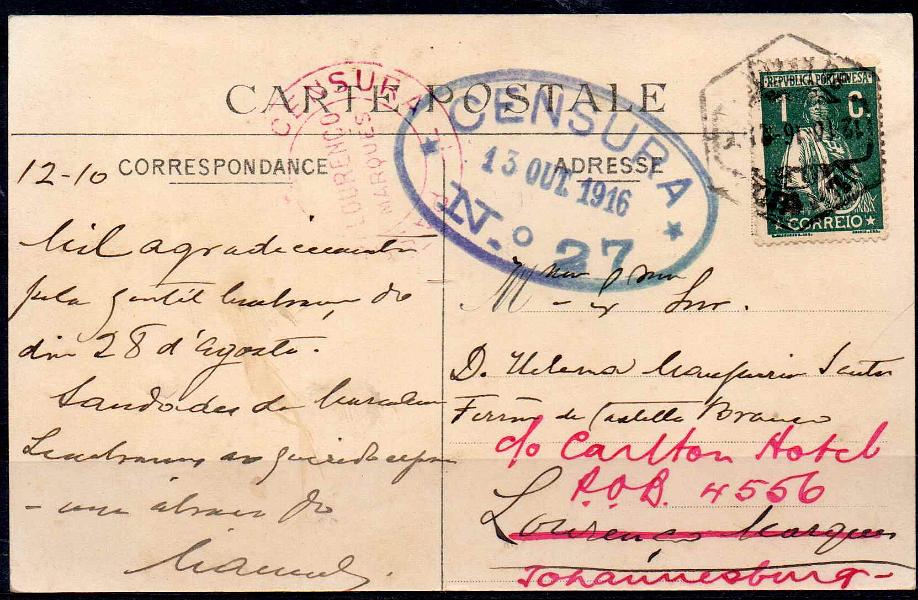 CARTE POSTALE
CENSURA
LOURENÇO
MARQUES
CENSURA
13 OUT. 1916
N.º 27
REPUBLICA PORTUGUESA
1 C.
CORREIO
CORRESPONDANCE
ADRESSE
12-10
Mil agradecimentos
pela gentil lembrança do
dia 28 d'Agosto.
Saudades de
Lembranças ao
um abraço do
Manuel.
Snr.
D. Helena Santos
Ferrão de Castello Branco
c/o Carlton Hotel
P.O.B. 4556
Lourenço Marques
Johannesburg-